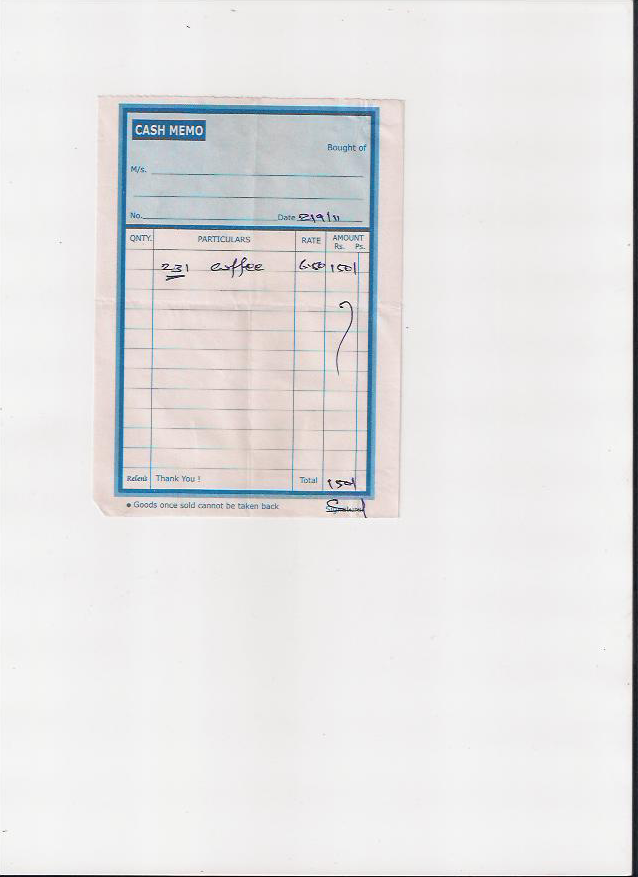 CASH MEMO
Bought of
M/s.
No. Date 2/9/11
QNTY. PARTICULARS RATE AMOUNT
Rs. Ps.
231 coffee 6.50 150/
Relents Thank You ! Total 150/
• Goods once sold cannot be taken back Signature